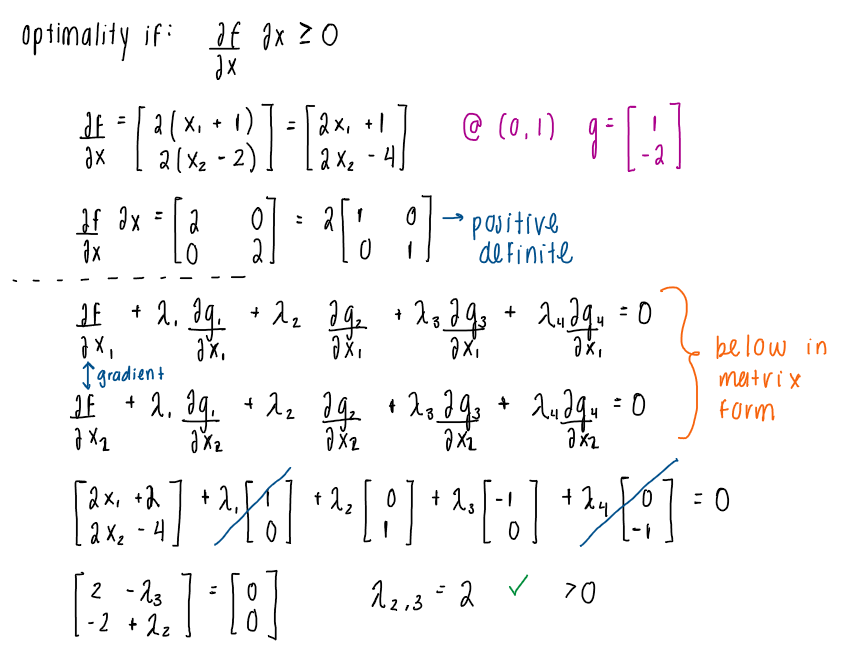 optimality if: ∂f/∂x ∂x ≥ 0
∂f/∂x = [2(x₁ + 1); 2(x₂ - 2)] = [2x₁ + 1; 2x₂ - 4] @ (0,1) g = [1; -2]
∂f/∂x ∂x = [2 0; 0 2] = 2[1 0; 0 1] → positive definite
∂f/∂x₁ + λ₁ ∂g₁/∂x₁ + λ₂ ∂g₂/∂x₁ + λ₃ ∂g₃/∂x₁ + λ₄ ∂g₄/∂x₁ = 0
↕ gradient
∂f/∂x₂ + λ₁ ∂g₁/∂x₂ + λ₂ ∂g₂/∂x₂ + λ₃ ∂g₃/∂x₂ + λ₄ ∂g₄/∂x₂ = 0
below in
matrix
form
[2x₁ + 2; 2x₂ - 4] + λ₁[1; 0] + λ₂[0; 1] + λ₃[-1; 0] + λ₄[0; -1] = 0
[2 - λ₃; -2 + λ₂] = [0; 0] λ₂,₃ = 2 ✓ >0